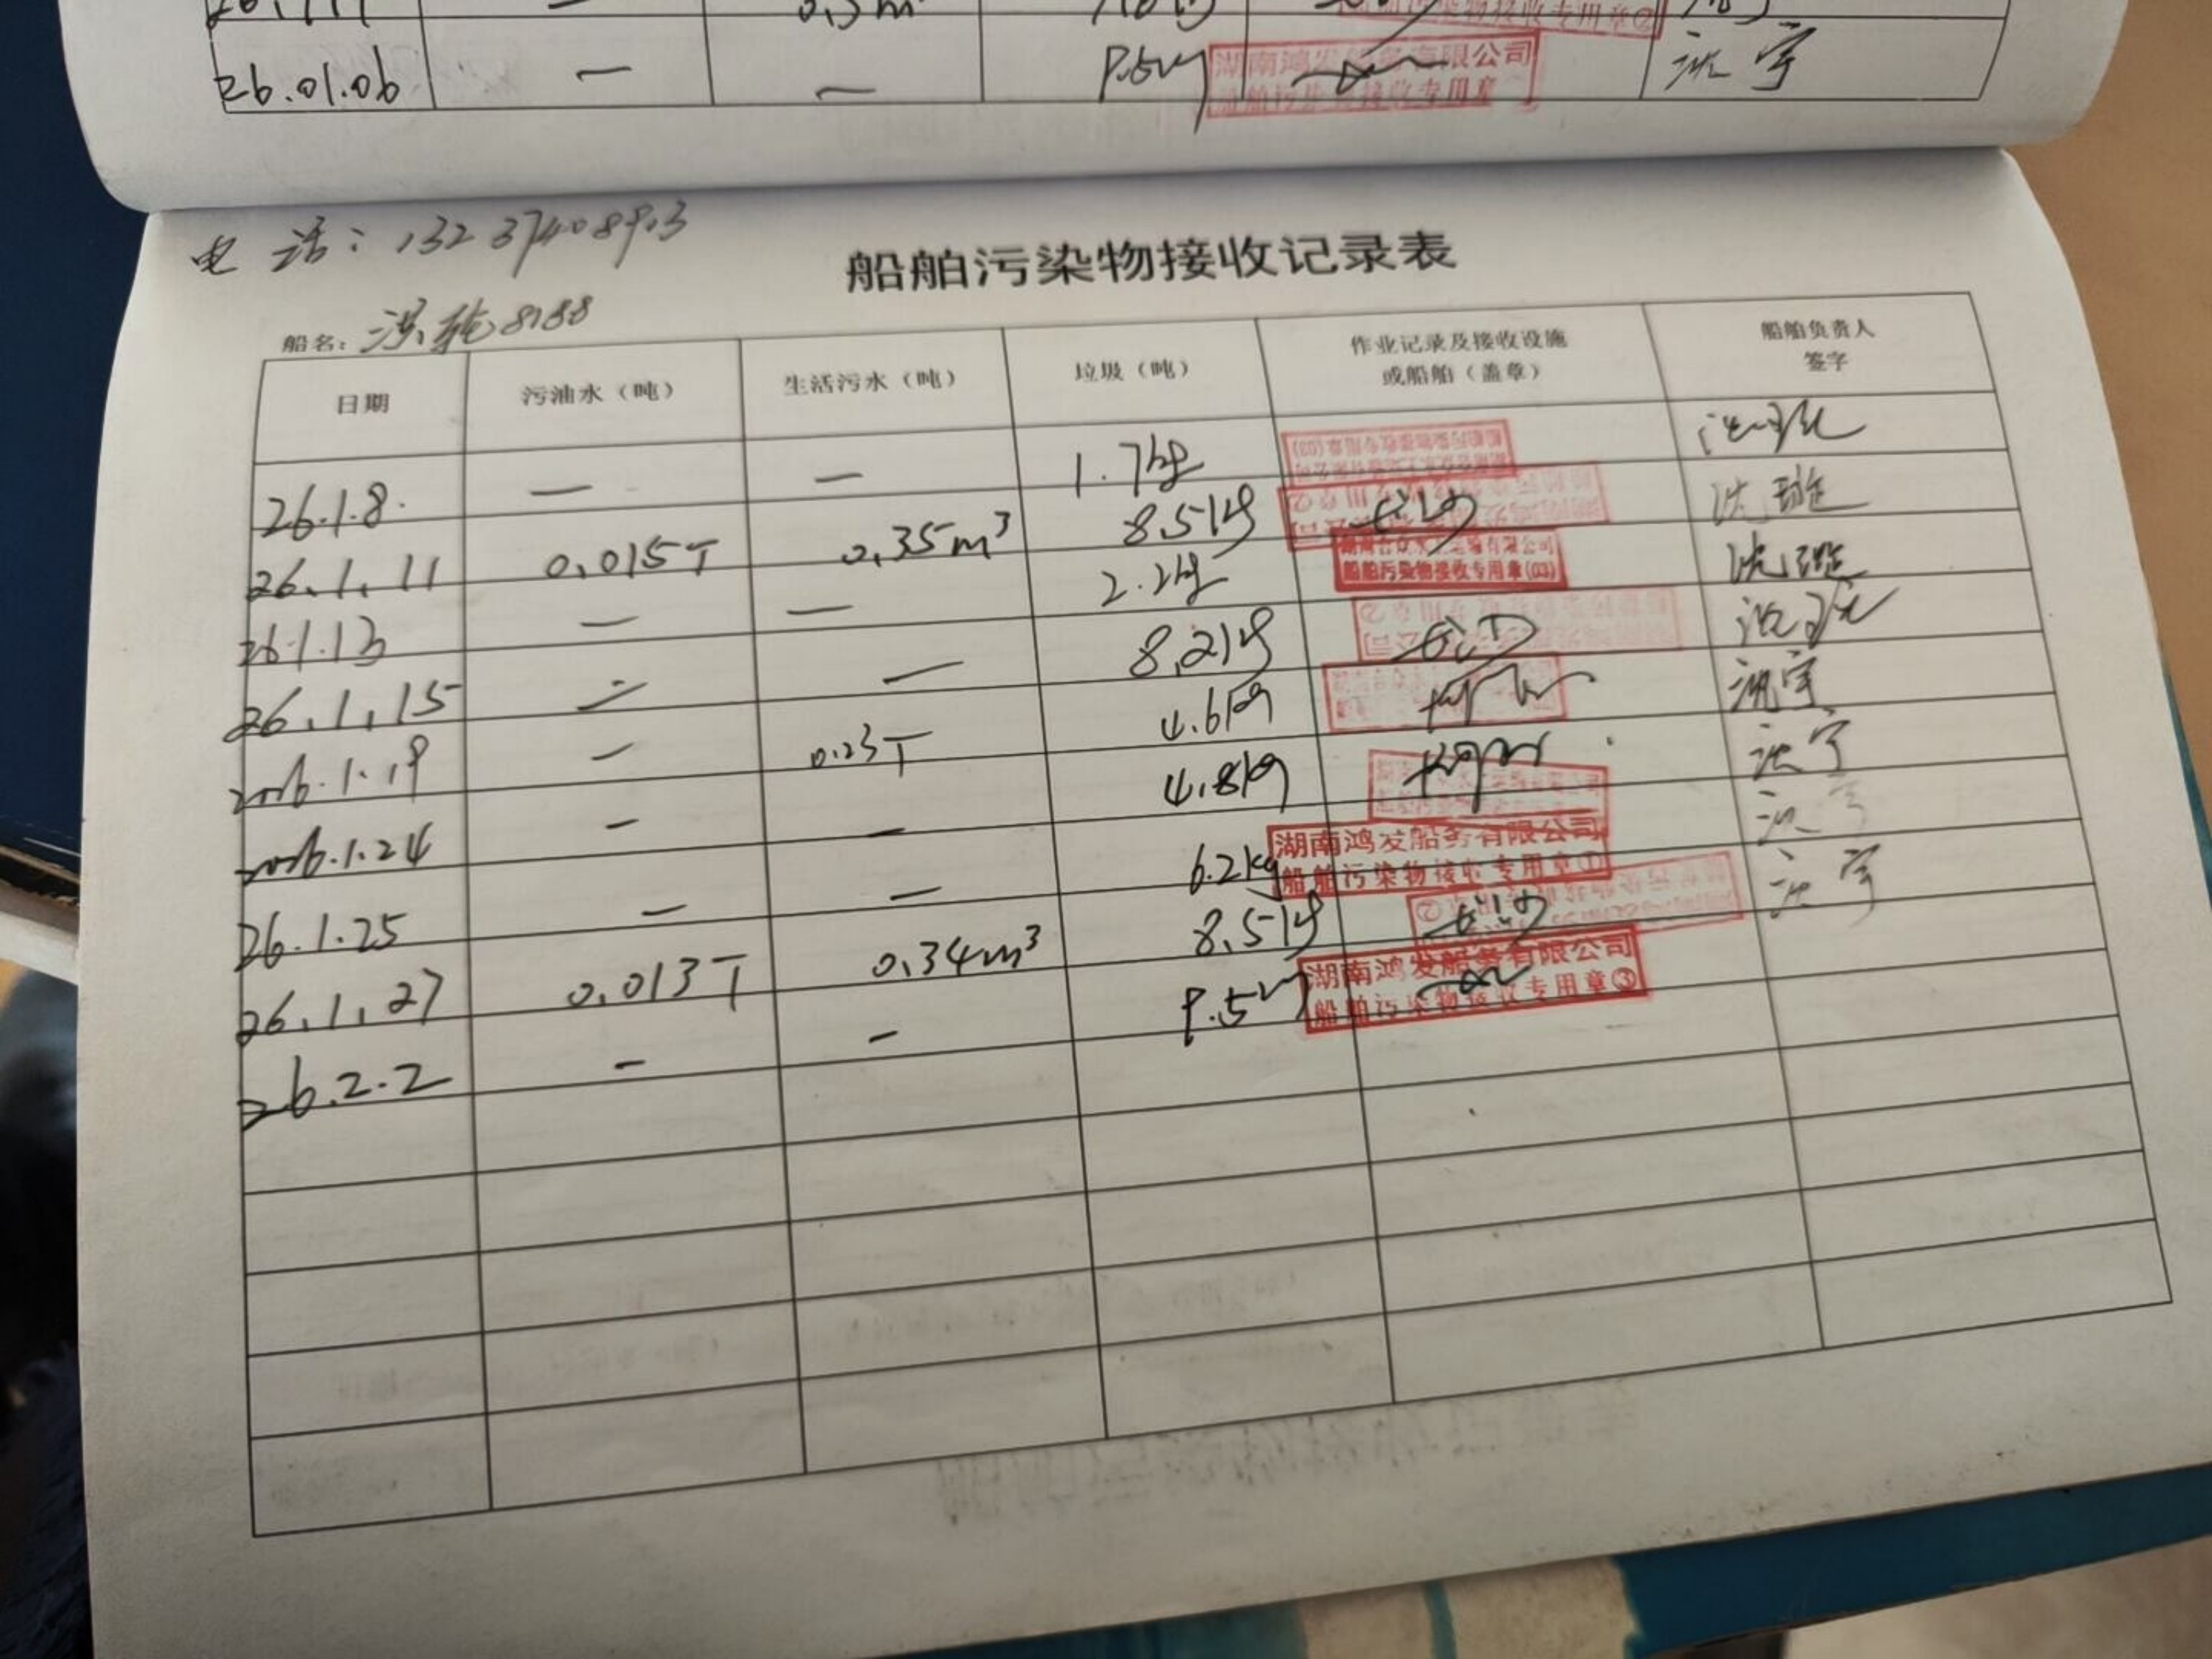 26.01.06 — — 9.5kg 湖南鸿发船务有限公司 沈宇
船舶污染物接收专用章
电话:132 3740 8913
船舶污染物接收记录表
船名: 8188
日期 污油水(吨) 生活污水(吨) 垃圾(吨) 作业记录及接收设施或船舶(盖章) 船舶负责人签字
26.1.8. — — 1.7kg
船舶污染物接收专用章(03)
26.1.11 0.015T 0.35m³ 8.5kg
26.1.13 — — 2.2kg
船舶污染物接收专用章(03)
26.1.15 — — 8.2kg
2026.1.19 — 0.23T 4.6kg 沈宇
2026.1.24 — — 4.8kg 沈宇
26.1.25 — — 6.2kg 湖南鸿发船务有限公司 沈宇
船舶污染物接收专用章①
26.1.27 0.013T 0.34m³ 8.5kg 沈宇
26.2.2 — — 9.5kg 湖南鸿发船务有限公司
船舶污染物接收专用章③